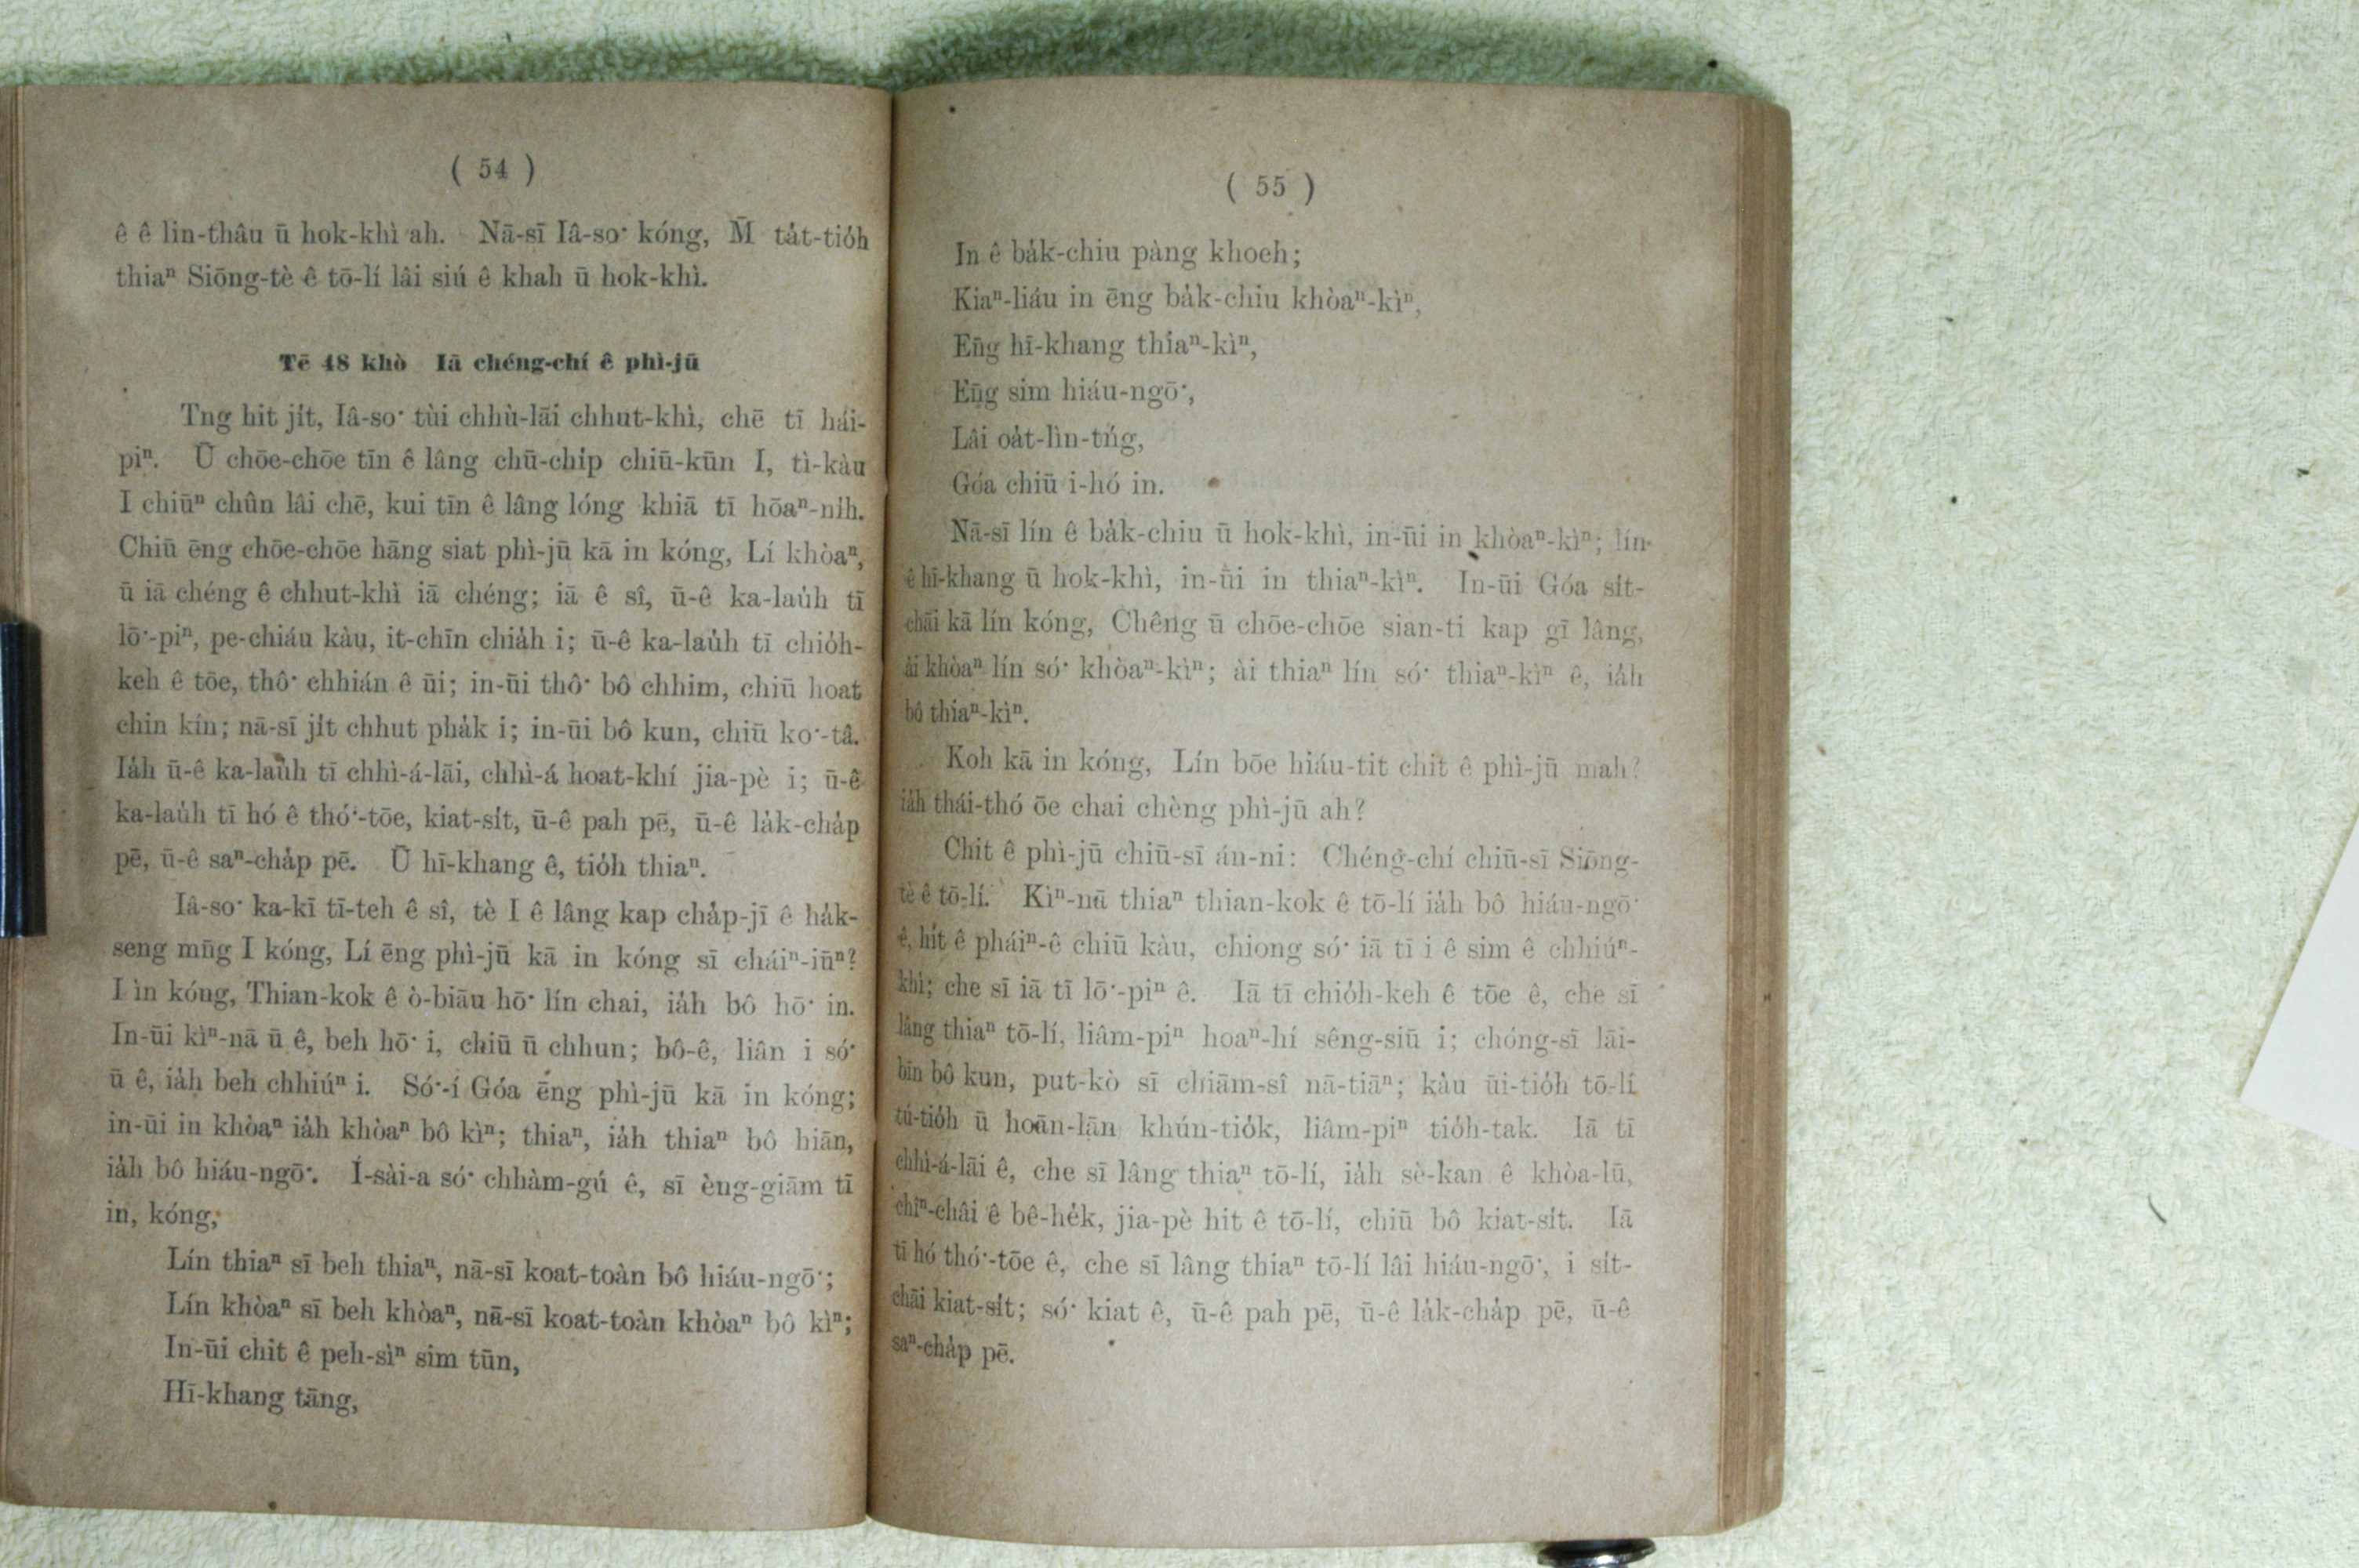 ( 54 )
ê ê lin-thâu ū hok-khì ah. Nā-sī Iâ-so͘ kóng, M̄ ta̍t-tio̍h
thiaⁿ Siōng-tè ê tō-lí lâi siú ê khah ū hok-khì.
Tē 48 khò Iā chéng-chí ê phì-jū
Tng hit ji̍t, Iâ-so͘ tùi chhù-lāi chhut-khì, chē tī hái-
piⁿ. Ū chōe-chōe tīn ê lâng chū-chi̍p chiū-kūn I, tì-kàu
I chiūⁿ chûn lâi chē, kui tīn ê lâng lóng khiā tī hōaⁿ-ni̍h.
Chiū ēng chōe-chōe hāng siat phì-jū kā in kóng, Lí khòaⁿ,
ū iā chéng ê chhut-khì iā chéng; iā ê sî, ū-ê ka-lau̍h tī
lō͘-piⁿ, pe-chiáu kàu, it-chīn chia̍h i; ū-ê ka-lau̍h tī chio̍h-
keh ê tōe, thô͘ chhián ê ūi; in-ūi thô͘ bô chhim, chiū hoat
chin kín; nā-sī ji̍t chhut pha̍k i; in-ūi bô kun, chiū ko͘-tâ.
Ia̍h ū-ê ka-lau̍h tī chhì-á-lāi, chhì-á hoat-khí jia-pè i; ū-ê
ka-lau̍h tī hó ê thó͘-tōe, kiat-si̍t, ū-ê pah pē, ū-ê la̍k-cha̍p
pē, ū-ê saⁿ-cha̍p pē. Ū hī-khang ê, tio̍h thiaⁿ.
Iâ-so͘ ka-kī tī-teh ê sî, tè I ê lâng kap cha̍p-jī ê ha̍k-
seng mn̄g I kóng, Lí ēng phì-jū kā in kóng sī cháiⁿ-iūⁿ?
I ìn kóng, Thian-kok ê ò-biāu hō͘ lín chai, ia̍h bô hō͘ in.
In-ūi kìⁿ-nā ū ê, beh hō͘ i, chiū ū chhun; bô-ê, liân i só͘
ū ê, ia̍h beh chhiúⁿ i. Só͘-í Góa ēng phì-jū kā in kóng;
in-ūi in khòaⁿ ia̍h khòaⁿ bô kìⁿ; thiaⁿ, ia̍h thiaⁿ bô hiān,
ia̍h bô hiáu-ngō͘. Í-sài-a só͘ chhàm-gú ê, sī èng-giām tī
in, kóng,
Lín thiaⁿ sī beh thiaⁿ, nā-sī koat-toàn bô hiáu-ngō͘;
Lín khòaⁿ sī beh khòaⁿ, nā-sī koat-toàn khòaⁿ bô kìⁿ;
In-ūi chit ê peh-sìⁿ sim tūn,
Hī-khang tāng,
( 55 )
In ê ba̍k-chiu pàng khoeh;
Kiaⁿ-liáu in ēng ba̍k-chiu khòaⁿ-kìⁿ,
Eng hī-khang thiaⁿ-kìⁿ,
Eng sim hiáu-ngō͘,
Lâi oa̍t-lìn-tńg,
Góa chiū i-hó in.
Nā-sī lín ê ba̍k-chiu ū hok-khì, in-ūi in khòaⁿ-kìⁿ; lín-
ê hī-khang ū hok-khì, in-ūi in thiaⁿ-kìⁿ. In-ūi Góa si̍t-
chāi kā lín kóng, Chêng ū chōe-chōe sian-ti kap gī lâng,
ài khòaⁿ lín só͘ khòaⁿ-kìⁿ; ài thiaⁿ lín só͘ thiaⁿ-kìⁿ ê, ia̍h
bô thiaⁿ-kìⁿ.
Koh kā in kóng, Lín bōe hiáu-tit chit ê phì-jū mah?
ia̍h thái-thó ōe chai chèng phì-jū ah?
Chit ê phì-jū chiū-sī án-ni: Chéng-chí chiū-sī Siōng-
tè ê tō-lí. Kìⁿ-nā thiaⁿ thian-kok ê tō-lí ia̍h bô hiáu-ngō͘
ê, hit ê pháiⁿ-ê chiū kàu, chiong só͘ iā tī i ê sim ê chhiúⁿ-
khì; che sī iā tī lō͘-piⁿ ê. Iā tī chio̍h-keh ê tōe ê, che sī
lâng thiaⁿ tō-lí, liâm-piⁿ hoaⁿ-hí sêng-siū i; chóng-sī lāi-
bīn bô kun, put-kò sī chiām-sî nā-tiāⁿ; kàu ūi-tio̍h tō-lí
tú-tio̍h ū hoān-lān khún-tio̍k, liâm-piⁿ tio̍h-tak. Iā tī
chhì-á-lāi ê, che sī lâng thiaⁿ tō-lí, ia̍h sè-kan ê khòa-lū,
chîⁿ-châi ê bê-he̍k, jia-pè hit ê tō-lí, chiū bô kiat-si̍t. Iā
tī hó thó͘-tōe ê, che sī lâng thiaⁿ tō-lí lâi hiáu-ngō͘, i si̍t-
chāi kiat-si̍t; só͘ kiat ê, ū-ê pah pē, ū-ê la̍k-cha̍p pē, ū-ê
saⁿ-cha̍p pē.